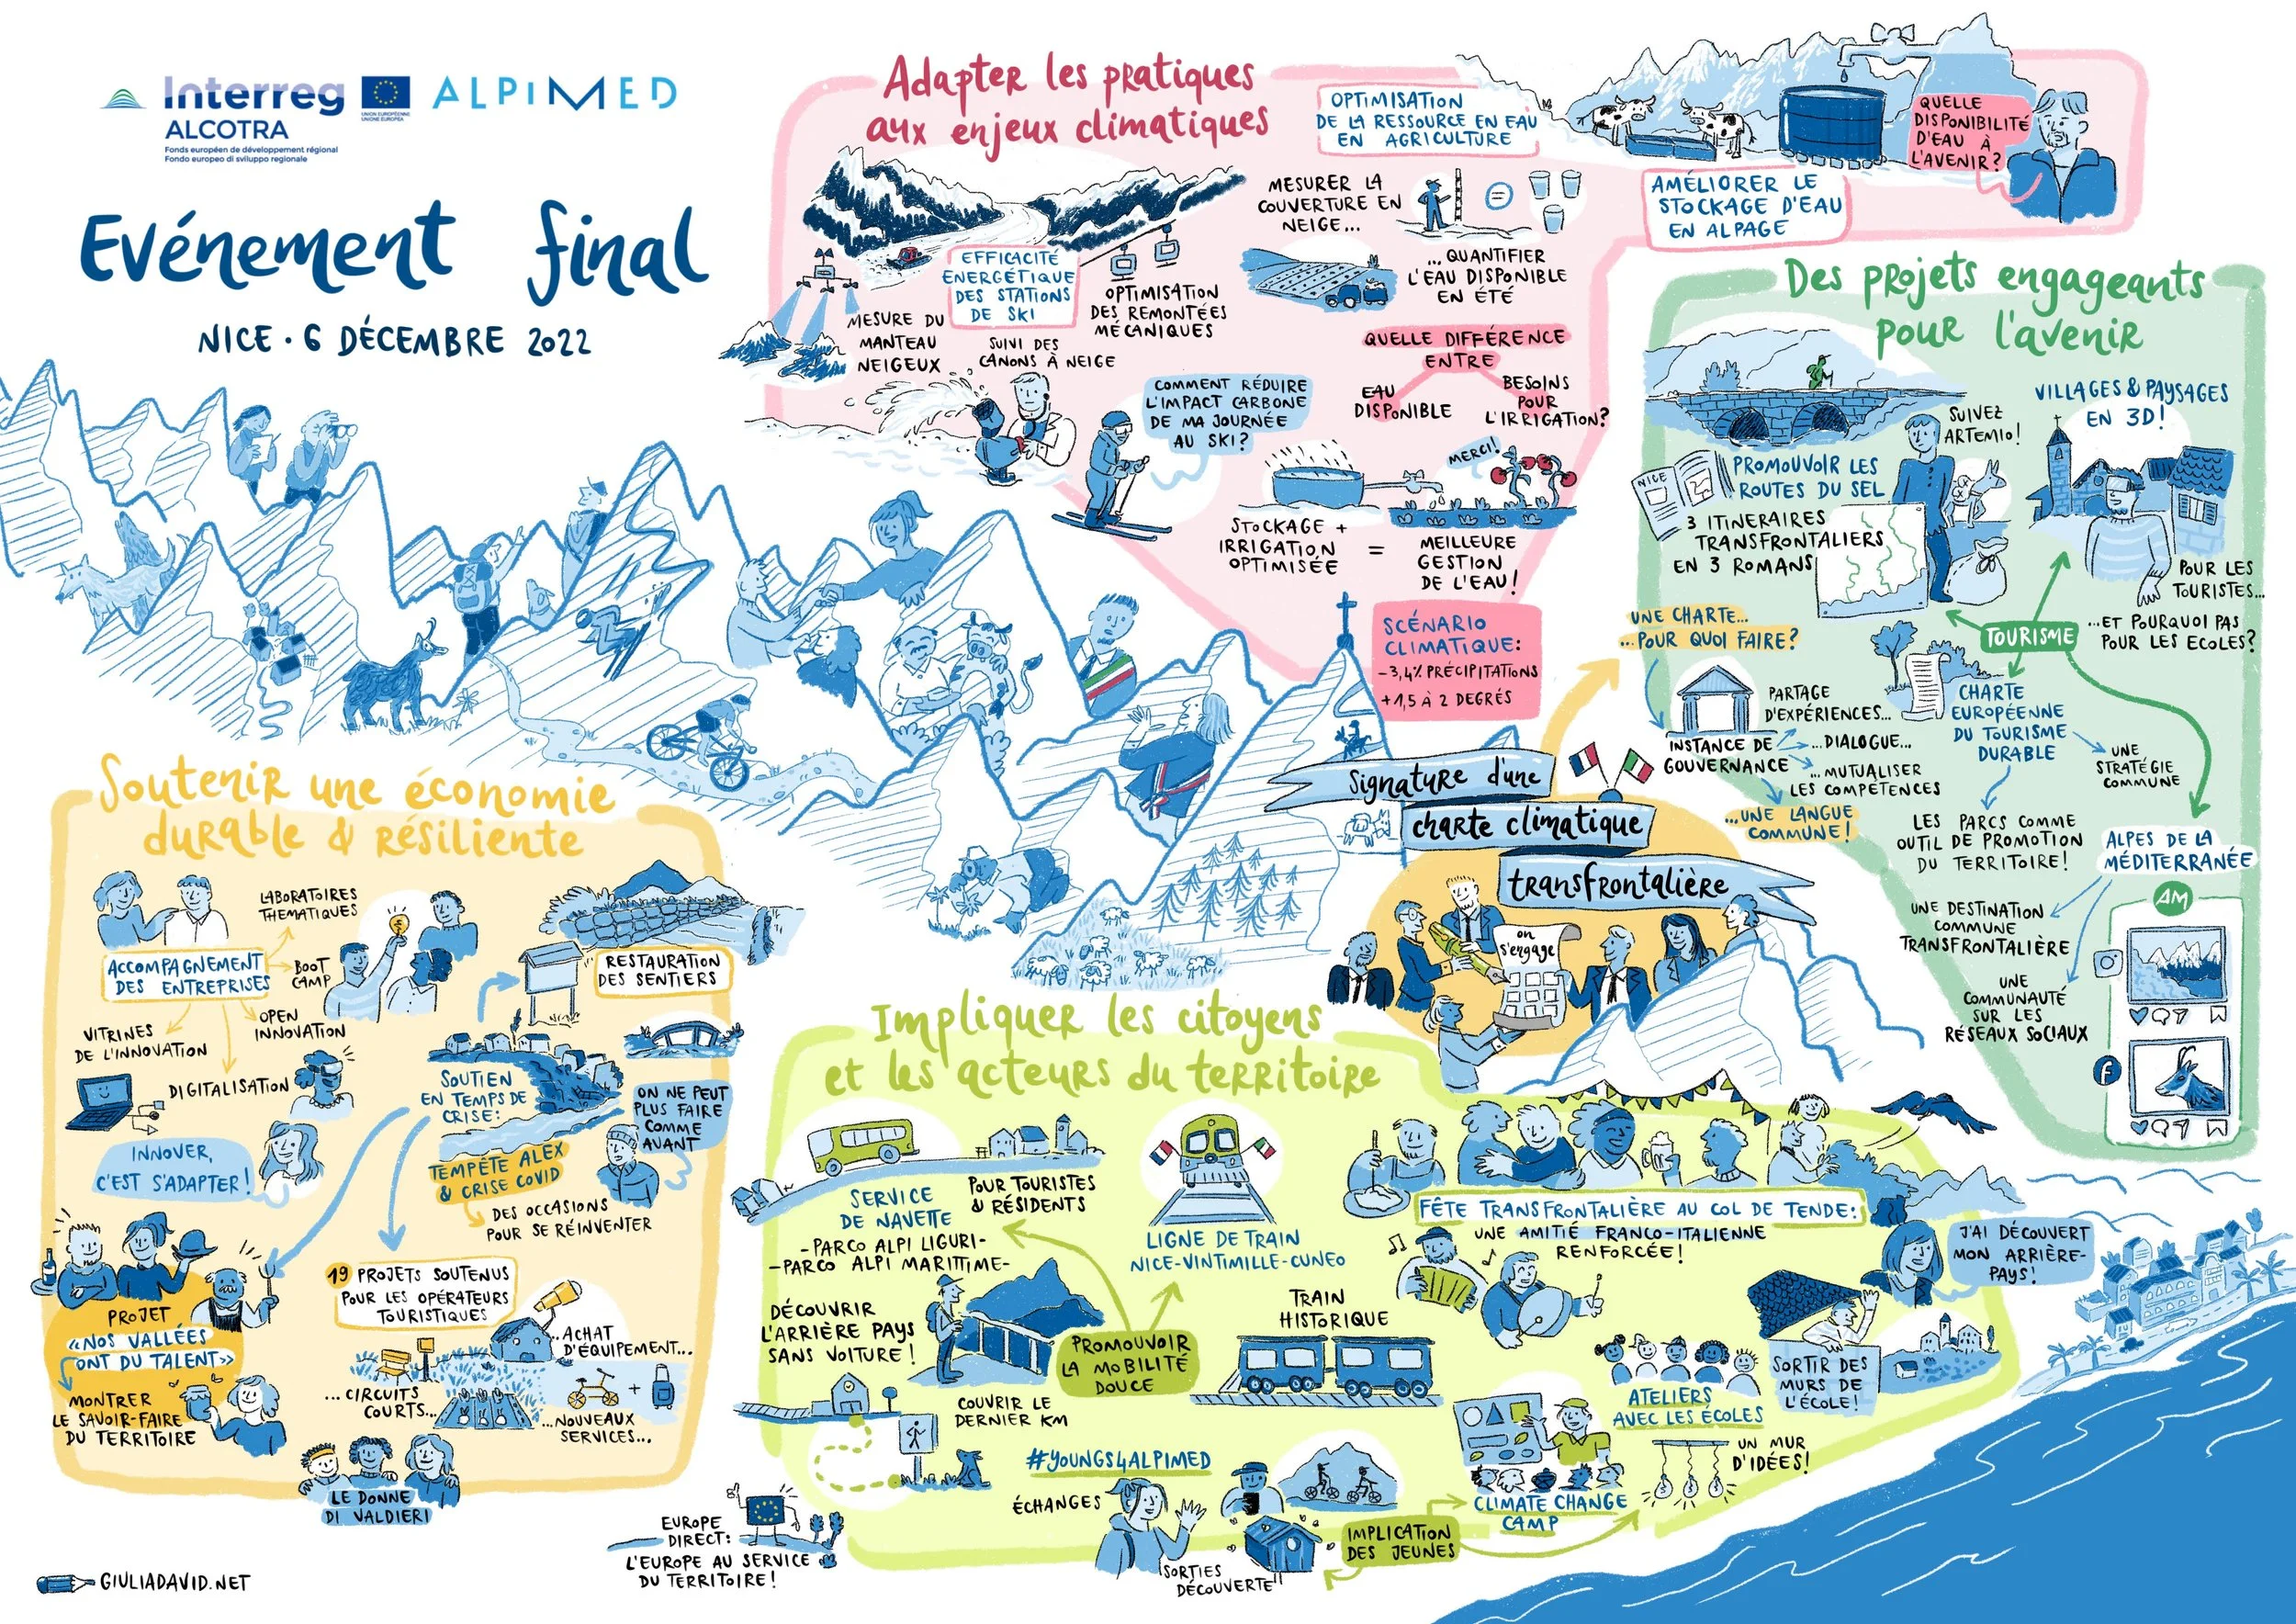 Interreg
ALCOTRA
UNION EUROPÉENNE
UNIONE EUROPEA
ALPIMED
Fonds européen de développement régional
Fondo europeo di sviluppo regionale
Evénement final
NICE · 6 DÉCEMBRE 2022
Adapter les pratiques
aux enjeux climatiques
OPTIMISATION
DE LA RESSOURCE EN EAU
EN AGRICULTURE
QUELLE
DISPONIBILITÉ
D'EAU À
L'AVENIR?
AMÉLIORER LE
STOCKAGE D'EAU
EN ALPAGE
MESURER LA
COUVERTURE EN
NEIGE...
=
... QUANTIFIER
L'EAU DISPONIBLE
EN ÉTÉ
EFFICACITÉ
ENERGÉTIQUE
DES STATIONS
DE SKI
OPTIMISATION
DES REMONTÉES
MÉCANIQUES
MESURE DU
MANTEAU
NEIGEUX
SUIVI DES
CANONS À NEIGE
COMMENT RÉDUIRE
L'IMPACT CARBONE
DE MA JOURNÉE
AU SKI?
QUELLE DIFFÉRENCE
ENTRE
EAU
DISPONIBLE
BESOINS
POUR
L'IRRIGATION?
MERCI!
STOCKAGE +
IRRIGATION
OPTIMISÉE
=
MEILLEURE
GESTION
DE L'EAU!
SCÉNARIO
CLIMATIQUE:
-3,4% PRÉCIPITATIONS
+1,5 À 2 DEGRÉS
Des projets engageants
pour l'avenir
SUIVEZ
ARTEMIO!
NICE
PROMOUVOIR LES
ROUTES DU SEL
3 ITINERAIRES
TRANSFRONTALIERS
EN 3 ROMANS
VILLAGES & PAYSAGES
EN 3D!
POUR LES
TOURISTES...
...ET POURQUOI PAS
POUR LES ECOLES?
TOURISME
UNE CHARTE...
...POUR QUOI FAIRE?
PARTAGE
D'EXPÉRIENCES...
INSTANCE DE
GOUVERNANCE
...DIALOGUE...
... MUTUALISER
LES COMPÉTENCES
...UNE LANGUE
COMMUNE!
CHARTE
EUROPÉENNE
DU TOURISME
DURABLE
UNE
STRATÉGIE
COMMUNE
LES PARCS COMME
OUTIL DE PROMOTION
DU TERRITOIRE!
ALPES DE LA
MÉDITERRANÉE
UNE DESTINATION
COMMUNE
TRANSFRONTALIÈRE
UNE
COMMUNAUTÉ
SUR LES
RÉSEAUX SOCIAUX
AM
f
signature d'une
charte climatique
transfrontalière
on
s'engage
Soutenir une économie
durable & résiliente
LABORATOIRES
THEMATIQUES
ACCOMPAGNEMENT
DES ENTREPRISES
BOOT
CAMP
OPEN
INNOVATION
VITRINES
DE L'INNOVATION
DIGITALISATION
INNOVER,
C'EST S'ADAPTER!
RESTAURATION
DES SENTIERS
SOUTIEN
EN TEMPS DE
CRISE:
ON NE PEUT
PLUS FAIRE
COMME
AVANT
TEMPÊTE ALEX
& CRISE COVID
DES OCCASIONS
POUR SE RÉINVENTER
PROJET
«NOS VALLÉES
ONT DU TALENT»
MONTRER
LE SAVOIR-FAIRE
DU TERRITOIRE
19 PROJETS SOUTENUS
POUR LES OPÉRATEURS
TOURISTIQUES
...ACHAT
D'ÉQUIPEMENT...
... CIRCUITS
COURTS...
+
...NOUVEAUX
SERVICES...
LE DONNE
DI VALDIERI
Impliquer les citoyens
et les acteurs du territoire
SERVICE
DE NAVETTE
-PARCO ALPI LIGURI-
-PARCO ALPI MARITTIME-
POUR TOURISTES
& RÉSIDENTS
LIGNE DE TRAIN
NICE-VINTIMILLE-CUNEO
DÉCOUVRIR
L'ARRIÈRE PAYS
SANS VOITURE!
PROMOUVOIR
LA MOBILITÉ
DOUCE
TRAIN
HISTORIQUE
COUVRIR LE
DERNIER KM
FÊTE TRANSFRONTALIÈRE AU COL DE TENDE:
UNE AMITIÉ FRANCO-ITALIENNE
RENFORCÉE!
J'AI DÉCOUVERT
MON ARRIÈRE-
PAYS!
SORTIR DES
MURS DE
L'ÉCOLE!
ATELIERS
AVEC LES ÉCOLES
UN MUR
D'IDÉES!
CLIMATE CHANGE
CAMP
#YOUNGS4ALPIMED
ÉCHANGES
IMPLICATION
DES JEUNES
SORTIES
DÉCOUVERTE
EUROPE
DIRECT:
L'EUROPE AU SERVICE
DU TERRITOIRE!
GIULIADAVID.NET